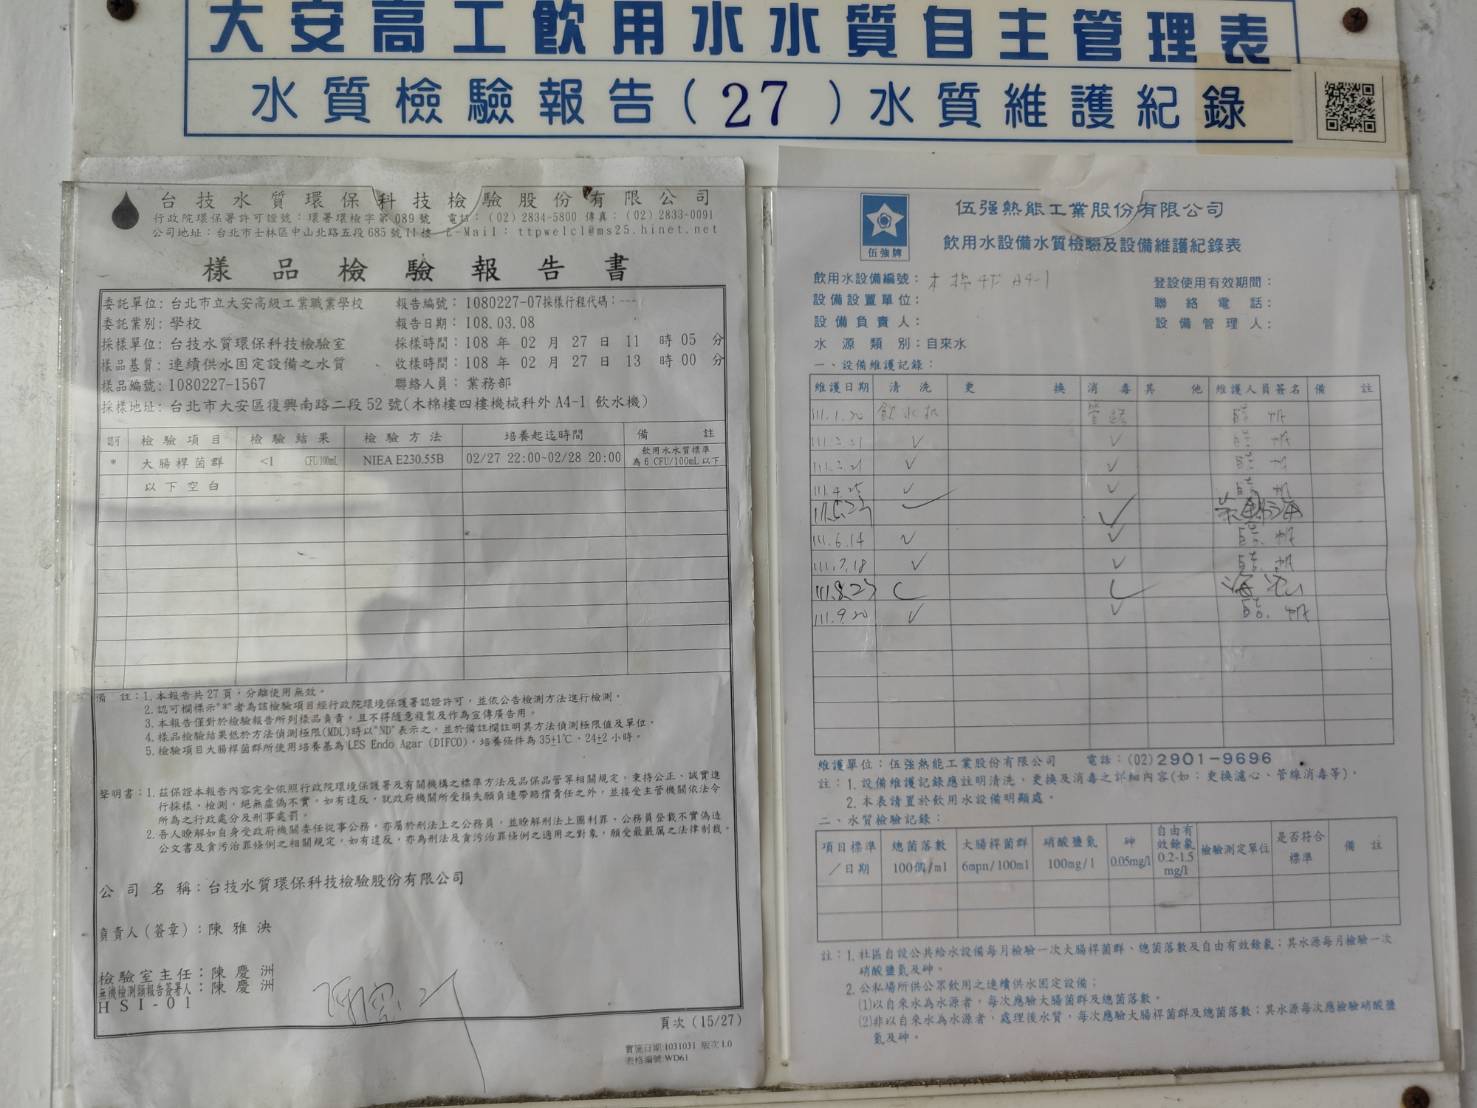 大安高工飲用水水質自主管理表
水質檢驗報告(27)水質維護紀錄
台技水質環保科技檢驗股份有限公司
行政院環保署許可證號：環署環檢字第089號 電話：(02)2834-5800 傳真：(02)2833-0091
公司地址：台北市士林區中山北路五段685號11樓 E-Mail：ttpwelcl@ms25.hinet.net
樣品檢驗報告書
委託單位：台北市立大安高級工業職業學校 報告編號：1080227-07採樣行程代碼：---
委託業別：學校 報告日期：108.03.08
採樣單位：台技水質環保科技檢驗室 採樣時間：108 年 02 月 27 日 11 時 05 分
樣品基質：連續供水固定設備之水質 收樣時間：108 年 02 月 27 日 13 時 00 分
樣品編號：1080227-1567 聯絡人員：業務部
採樣地址：台北市大安區復興南路二段52號(木棉樓四樓機械科外A4-1飲水機)
認可 檢驗項目 檢驗結果 檢驗方法 培養起迄時間 備註
* 大腸桿菌群 <1 CFU/100mL NIEA E230.55B 02/27 22:00~02/28 20:00 飲用水水質標準
為6 CFU/100mL以下
以下空白
備註：1.本報告共27頁，分離使用無效。
2.認可欄標示"*"者為該檢驗項目經行政院環境保護署認證許可，並依公告檢測方法進行檢測。
3.本報告僅對於檢驗報告所列樣品負責，且不得隨意複製及作為宣傳廣告用。
4.樣品檢驗結果低於方法偵測極限(MDL)時以"ND"表示之，並於備註欄註明其方法偵測極限值及單位。
5.檢驗項目大腸桿菌群所使用培養基為LES Endo Agar (DIFCO)，培養條件為35±1℃，24±2小時。
聲明書：1.茲保證本報告內容完全依照行政院環境保護署及有關機構之標準方法及品保品管等相關規定，秉持公正、誠實進
行採樣、檢測。絕無虛偽不實，如有違反，就政府機關所受損失願負連帶賠償責任之外，並接受主管機關依法令
所為之行政處分及刑事處罰。
2.吾人瞭解如自身受政府機關委任從事公務，亦屬於刑法上之公務員，並瞭解刑法上圖利罪、公務員登載不實偽造
公文書及貪污治罪條例之相關規定，如有違反，亦為刑法及貪污治罪條例之適用之對象，願受最嚴厲之法律制裁。
公司名稱：台技水質環保科技檢驗股份有限公司
負責人(簽章)：陳雅泱
檢驗室主任：陳慶洲
無機檢測類報告簽署人：陳慶洲
HSI-01
頁次(15/27)
實施日期:1031031 版次1.0
表格編號:WD61
伍強牌
伍强熱能工業股份有限公司
飲用水設備水質檢驗及設備維護紀錄表
飲用水設備編號：木棉4F A4-1 登設使用有效期間：
設備設置單位： 聯絡電話：
設備負責人： 設備管理人：
水源類別：自來水
一、設備維護記錄：
維護日期 清洗 更換 消毒 其他 維護人員簽名 備註
111.1.20 飲水机 管路
111.2.21 ✓ ✓
111.3.21 ✓ ✓
111.4.25 ✓ ✓
111.5.23 ✓ ✓
111.6.14 ✓ ✓
111.7.18 ✓ ✓
111.8.23 ✓ ✓
111.9.20 ✓ ✓
維護單位：伍强熱能工業股份有限公司 電話：(02)2901-9696
註：1.設備維護記錄應註明清洗、更換及消毒之詳細內容(如：更換濾心、管線消毒等)。
2.本表請置於飲用水設備明顯處。
二、水質檢驗記錄：
項目標準／日期 總菌落數 100個/ml 大腸桿菌群 6mpn/100ml 硝酸鹽氮 100mg/l 砷 0.05mg/l 自由有效餘氯 0.2-1.5 mg/l 檢驗測定單位 是否符合標準 備註
註：1.社區自設公共給水設備每月檢驗一次大腸桿菌群、總菌落數及自由有效餘氯；其水源每月檢驗一次
硝酸鹽氮及砷。
2.公私場所供公眾飲用之連續供水固定設備；
(1)以自來水為水源者，每次應驗大腸菌群及總菌落數。
(2)非以自來水為水源者，處理後水質，每次應驗大腸桿菌群及總菌落數；其水源每次應檢驗硝酸鹽
氮及砷。